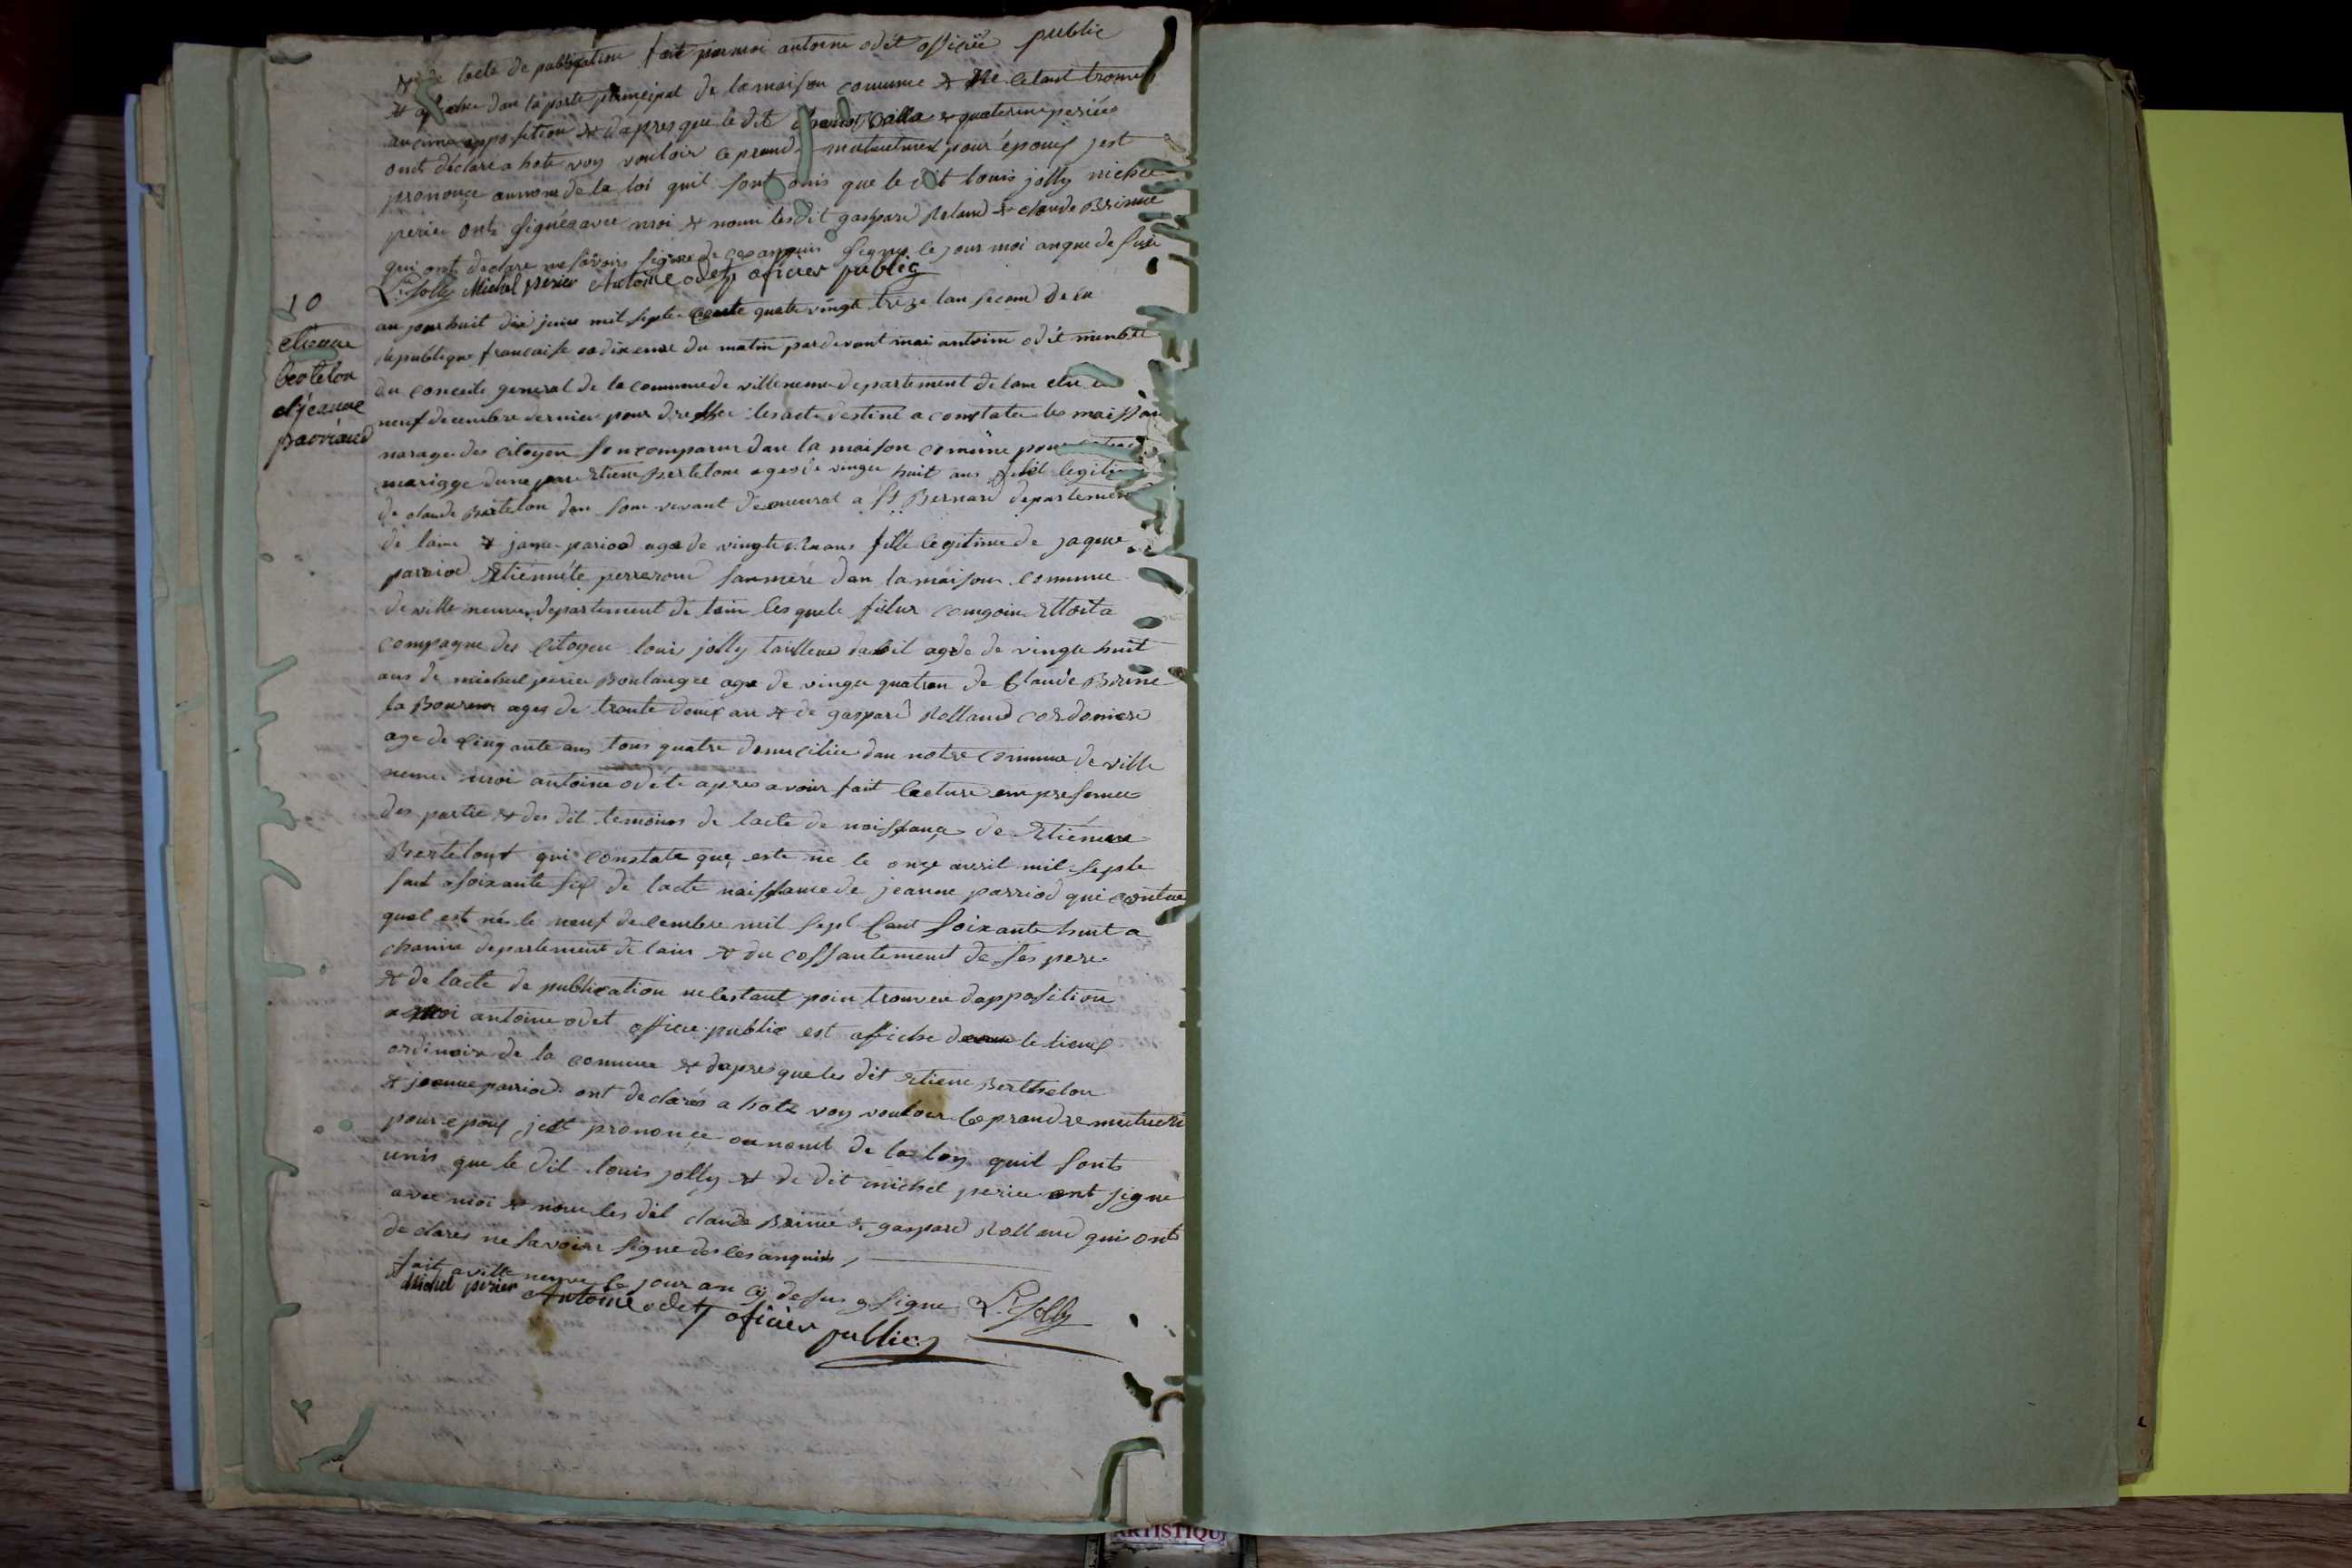 de lacte de publication fait par moi antoine odet officié public
& afiche dan la porte prinsipal de la maison commune & ne cetant trouve
aucune apposition & dapres que le dit balla & quaterine periée
ont déclare a hote voy vouloir ce prendre mutuelmen pour épouse jest
pronouce aunom de la loi quil sont unis que le dit louis jolly michee
perier ont signéz avec moi & nonu lesdit gaspard Roland & claude Brinne
qui ont declare ne savoire signe de ces anquis signes le jour moi anque de susi
Ls Jolly Michel perier Antoine odet oficier public
10
etienne
bertelon
et jeanne
parriaud
au jourhuit dix juin mil septe cente quatre vingt treze lan second de la
republique francaise a dix eure du matin par devant moi antoine odet menbre
du conceile general de la commune de villeneuve departement de lain elu le
neuf decembre dernier pour dresser les acte destiné a constater les naissan
marage des citoyen son comparus dan la maison comune pour
mariage dune par Etiene bertelone ages de vingte huit ans fils legitime
de claude Bertelon dan son vivant demeurat a St Bernard departement
de laine & jane pariod age de vingte ans fille legitime de jaque
parriod & Etiennéte perreroud sa mere dan la maison commune
de ville neuve departement de lain les quele futur congoin Ettoit a
compagne des citoyen louis jolly tailleur dabit agée de vingte huit
ans de michel perier Boulanger age de vingte quatr an de Claude Brinne
la Boureur ages de trante deux an & de gaspard Rolland cordonier
age de cinqante ans tous quatre domicilie dan notre commune de ville
neuve moi antoine odét apres avoir fait lecture em presence
des partie & des dit temoins de lacte de naissance de Etiénne
Bertelont qui constate que este ne le onze avril mil septe
sant soixante six de lacte naissance de jeanne parriod qui contue
quel est née le neuf decembre mil sept cant soixante huit a
chanin departement de lain & du cossantement de ses pere
& de lacte de publication ne cestant poin trouvée dapposition
a moi antoine odet officie public est affiche le lieux
ordinaire de la commune & dapres que les dit etiene Berthelon
& jeanne parriod ont declarés a hote voy vouloir ce prandre mutuelle
pour epoux jest prononcé au nomt de la loy quil sonts
unis que le dit louis jolly & de dit michel perier ont signé
avec moi & nonu les dit claude Brinné & gaspard Rolland qui onts
declarés ne savoire signe des ces anquis
fait a ville neuve le jour an cy desus & signe Ls Jolly
Michel perier Antoine odet oficier public